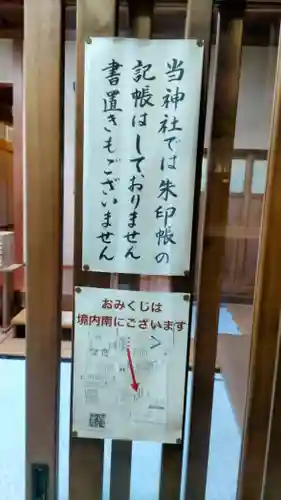 当神社では朱印帳の
記帳はしておりません
書置きもございません
おみくじは
境内南にございます